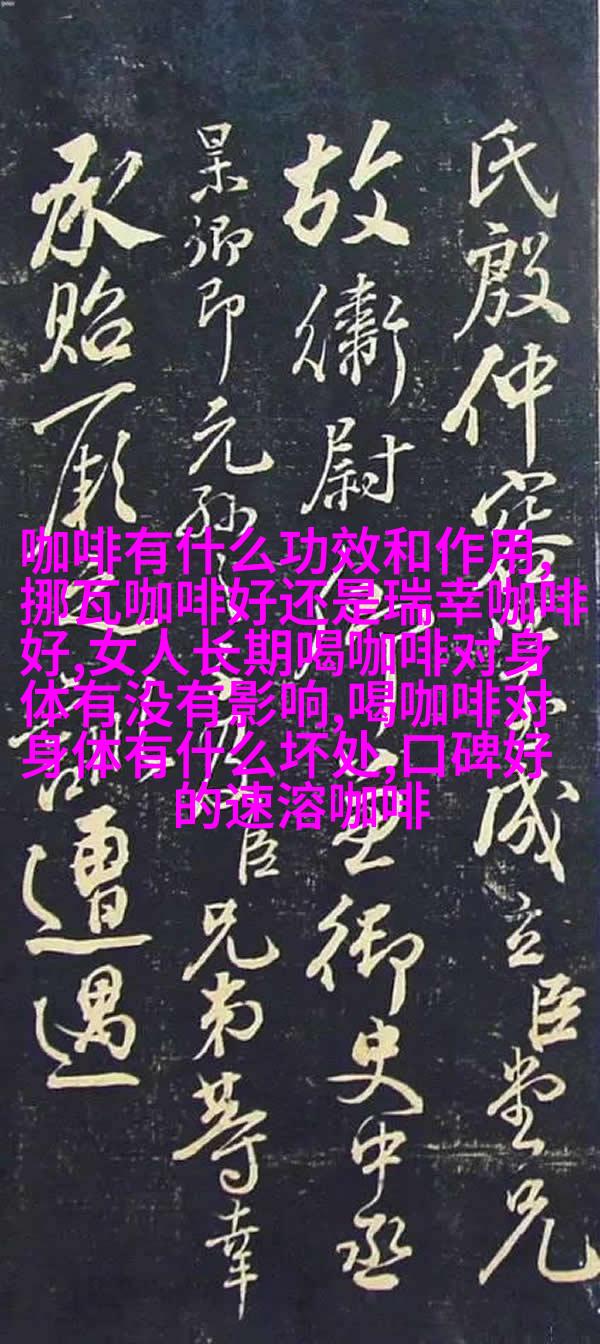 氏殷仲容成立臣堂兄
故衛尉御史中丞
杲卿即元孫臣兄弟等幸
承貽厥遭遇
咖啡有什么功效和作用,
挪瓦咖啡好还是瑞幸咖啡
好,女人长期喝咖啡对身
体有没有影响,喝咖啡对
身体有什么坏处,口碑好
的速溶咖啡